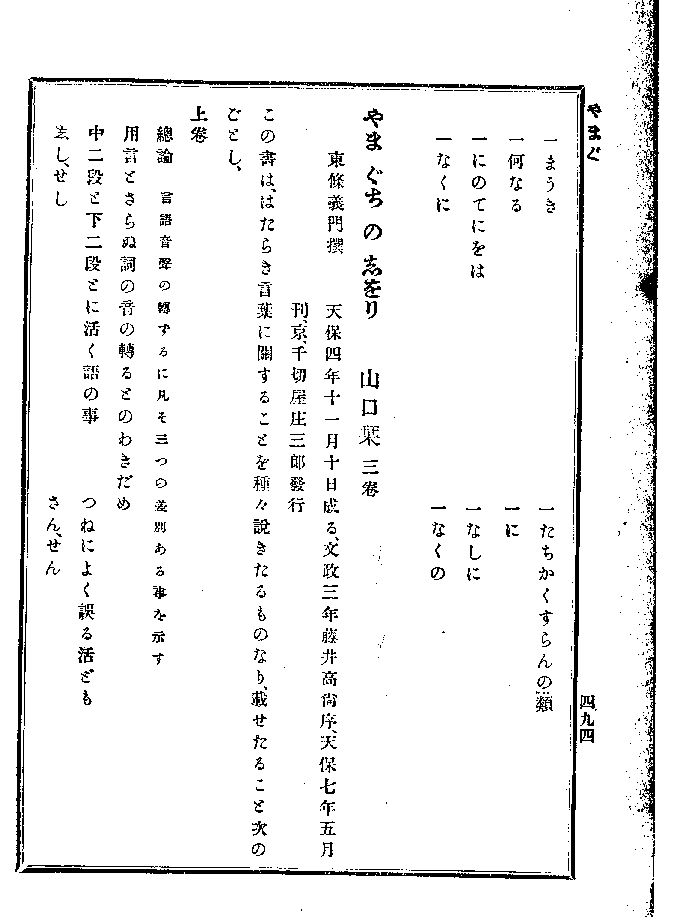 やまぐ
四九四
一まうき
一たちかくすらんの類
一何なる
一に
一にのてにをは
一なしに
一なくに
一なくの
やまぐちの志をり 山口栞 三卷
東條義門撰 天保四年十一月十日成る、文政三年藤井高尙序、天保七年五月
刊、京、千切屋庄三郎發行
この書は、はたらき言葉に關することを種々說きたるものなり、載せたること次の
ごとし、
上卷
總論 言語音聲の轉ずるに凡そ三つの差別ある事を示す
用言とさらぬ詞の音の轉るとのわきだめ
中二段と下二段とに活く語の事
つねによく誤る活ども
ましゝせし
さん、せん